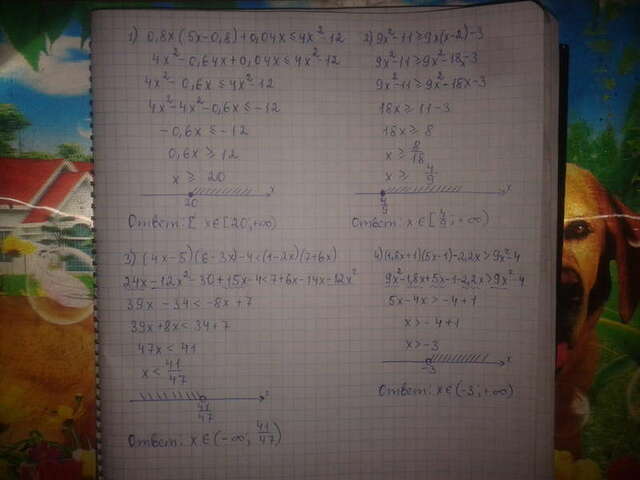 1) 0,8x(5x-0,8)+0,04x≤4x²-12
4x²-0,64x+0,04x≤4x²-12
4x²-0,6x≤4x²-12
4x²-4x²-0,6x≤-12
-0,6x≤-12
0,6x≥12
x≥20
20
x
Ответ: [ x∈[20;+∞)
2) 9x²-11≥9x(x-2)-3
9x²-11≥9x²-18-3
9x²-11≥9x²-18x-3
18x≥11-3
18x≥8
x≥8/18
x≥4/9
4/9
x
Ответ: x∈[4/9;+∞)
3) (4x-5)(6-3x)-4<(1-2x)(7+6x)
24x-12x²-30+15x-4<7+6x-14x-12x²
39x-34<-8x+7
39x+8x<34+7
47x<41
x<41/47
41/47
x
Ответ: x∈(-∞;41/47)
4) (1,8x+1)(5x-1)-2,2x>9x²-4
9x²-1,8x+5x-1-2,2x>9x²-4
5x-4x>-4+1
x>-4+1
x>-3
-3
x
Ответ: x∈(-3;+∞)